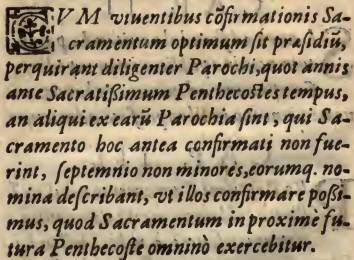 CVM viuentibus cõfirmationis Sa-
cramentum optimum sit præsidiũ,
perquirant diligenter Parochi, quot annis
ante Sacratißimum Penthecostes tempus,
an aliqui ex earũ Parochia sint, qui Sa-
cramento hoc antea confirmati non fue-
rint, septemnio non minores, eorumq. no-
mina describant, vt illos confirmare poßi-
mus, quod Sacramentum in proximè fu-
tura Penthecoste omninò exercebitur.